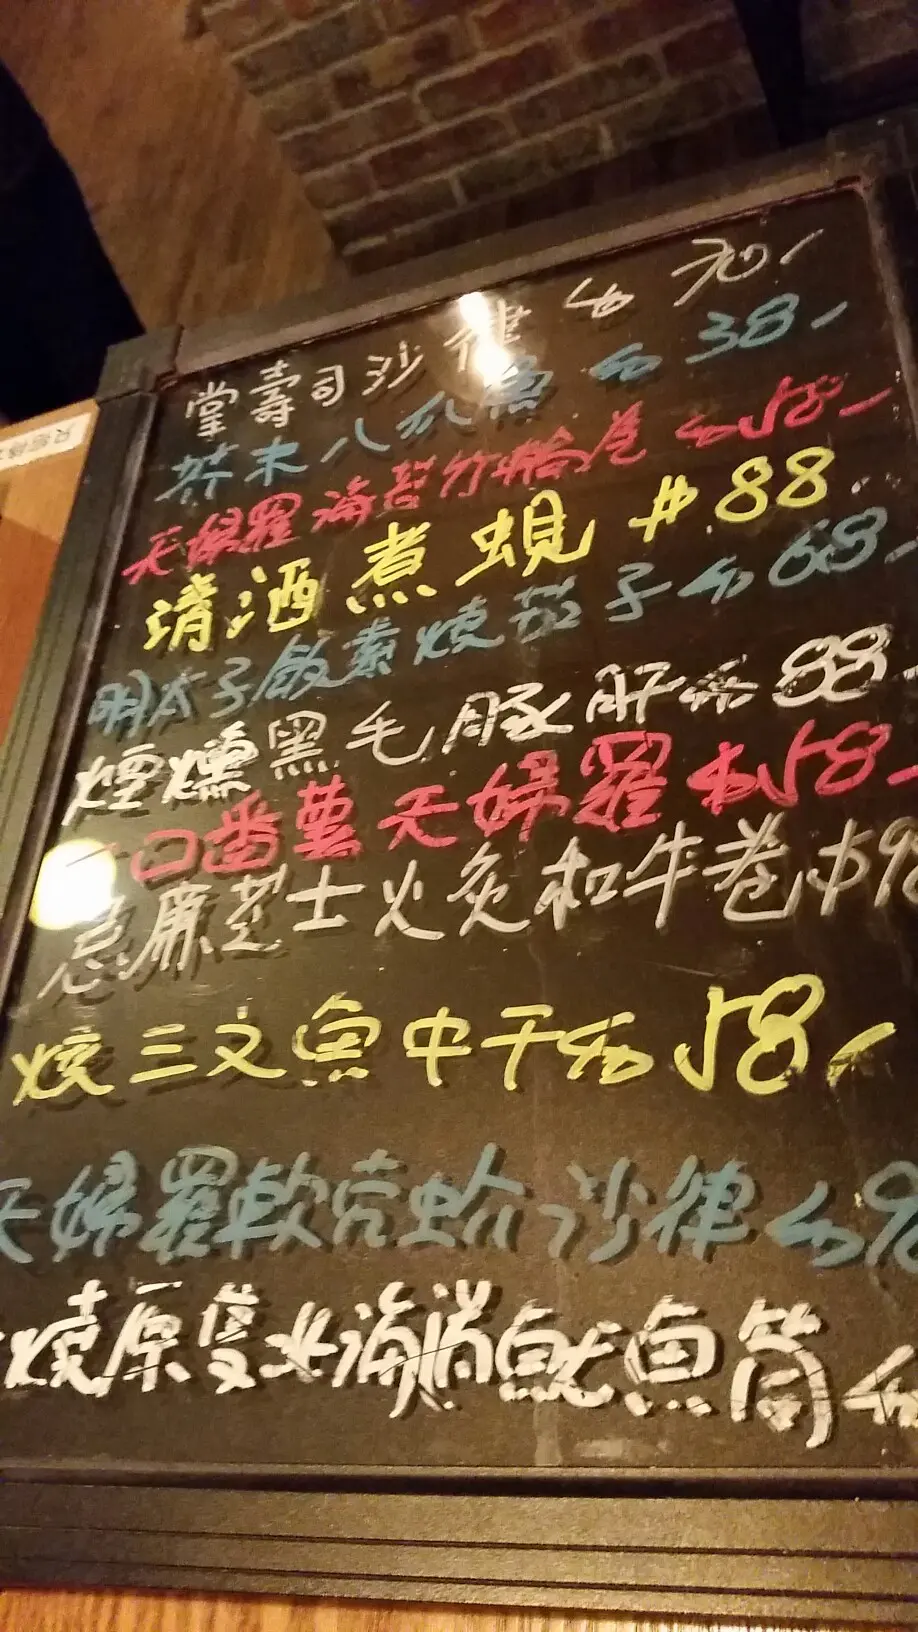 掌壽司沙律 $70-
芥末八爪魚 $38-
天婦羅海苔竹輪卷 $58-
清酒煮蜆 $88
明太子飯素燒茄子 $68-
煙燻黑毛豚肝 $88-
一口番薯天婦羅 $58-
忌廉芝士火炙和牛卷 $9
燒三文魚中干 $58-
天婦羅軟壳蚧沙律 $9
燒原隻北海道魷魚筒 $